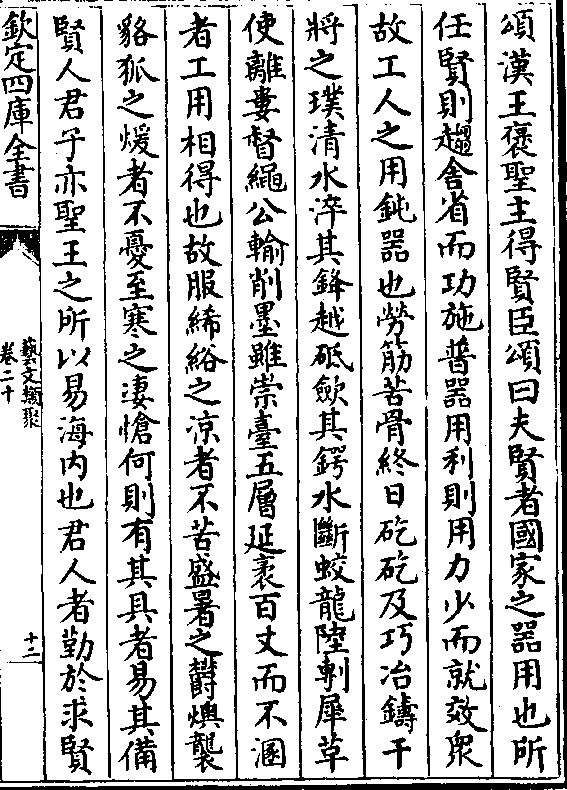 頌漢王褒聖主得賢臣頌曰夫賢者國家之器用也所
任賢則趨舍省而功施普器用利則用力少而就效衆
故工人之用鈍器也勞筋苦骨終日矻矻及巧冶鑄干
將之璞清水淬其鋒越砥歛其鍔水斷蛟龍陸剸犀革
使離婁督繩公輸削墨雖崇臺五層延袤百丈而不溷
者工用相得也故服絺綌之凉者不苦盛暑之鬱燠襲
貉狐之煖者不憂至寒之凄愴何則有其具者易其備
賢人君子亦聖王之所以易海内也君人者勤於求賢
欽定四庫全書
藝文類聚
卷二十
十二